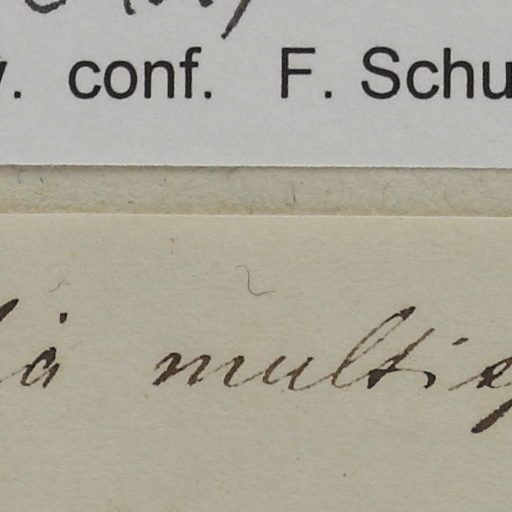 v. conf. F. Schu
ia multisp